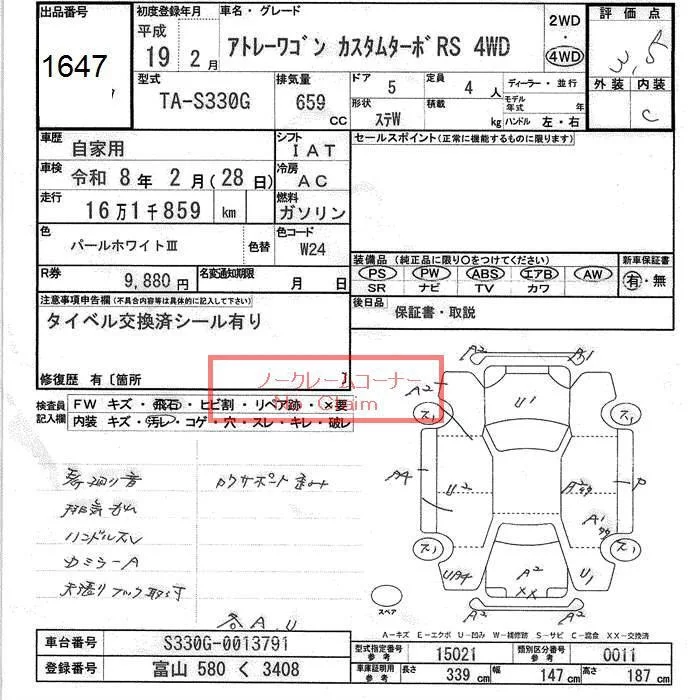 出品番号 初度登録年月 車名・グレード 2WD ・ 4WD 評価点
1647 平成 19 2月 アトレーワゴン カスタムターボRS 4WD 3.5
型式 排気量 ドア 5 定員 4 人 ディーラー・並行 外装 内装
TA-S330G 659 CC 形状 ステW 積載 kg モデル年式 年 ハンドル 左・右 C
車歴 自家用 シフト IAT セールスポイント(正常に機能するものに限ります)
車検 令和 8年 2月(28日) 冷房 AC
走行 16万1千859 km 燃料 ガソリン
色 パールホワイトⅢ 色替 色コード W24
装備品(純正品に限り○をつけてください) 新車保証書
R券 9,880円 名変通知期限 月 日 PS PW ABS エアB AW 有・無
SR ナビ TV カワ
注意事項申告欄(不具合内容等は具体的に記入して下さい) 後日品 保証書・取説
タイベル交換済シール有り
修復歴 有〔箇所 〕
ノークレームコーナー
No Claim
検査員記入欄 FW キズ・飛石・ヒビ割・リペア跡・×要
内装 キズ・汚レ・コゲ・穴・スレ・キレ・破レ
A2 A1
A2 U1
ス1 ス1
A4 U2 P
A1
ス1 ス1
UA4 A2 XX U1
スペア A2 A2
ハンドルスレ
カミラーA
各A.U
A-キズ E-エクボ U-凹み W-補修跡 S-サビ C-腐食 XX-交換済
車台番号 S330G-0013791 型式指定番号 参考 15021 類別区分番号 参考 0011
登録番号 富山 580 く 3408 車庫証明用 参考 長さ 339 cm 幅 147 cm 高さ 187 cm